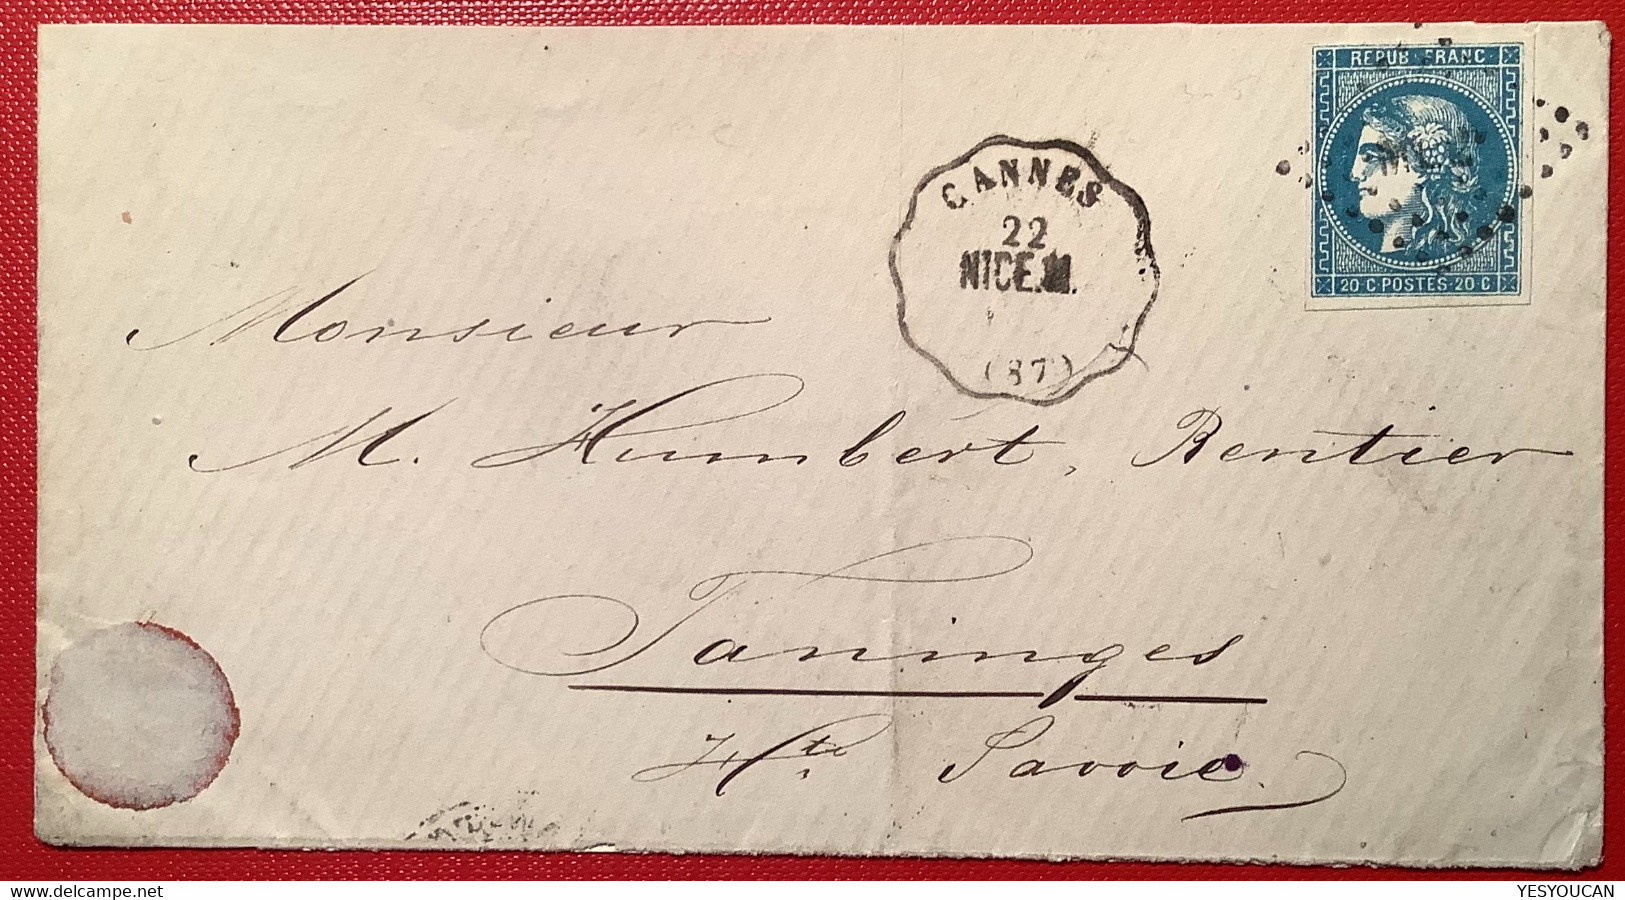 REPUB·FRANC·
20·C·POSTES·20·C
CANNES
22
NICE.M.
(87)
Monsieur
M. Humbert, Rentier
Taninges
Hte. Savoie.
delcampe.net
YESYOUCAN